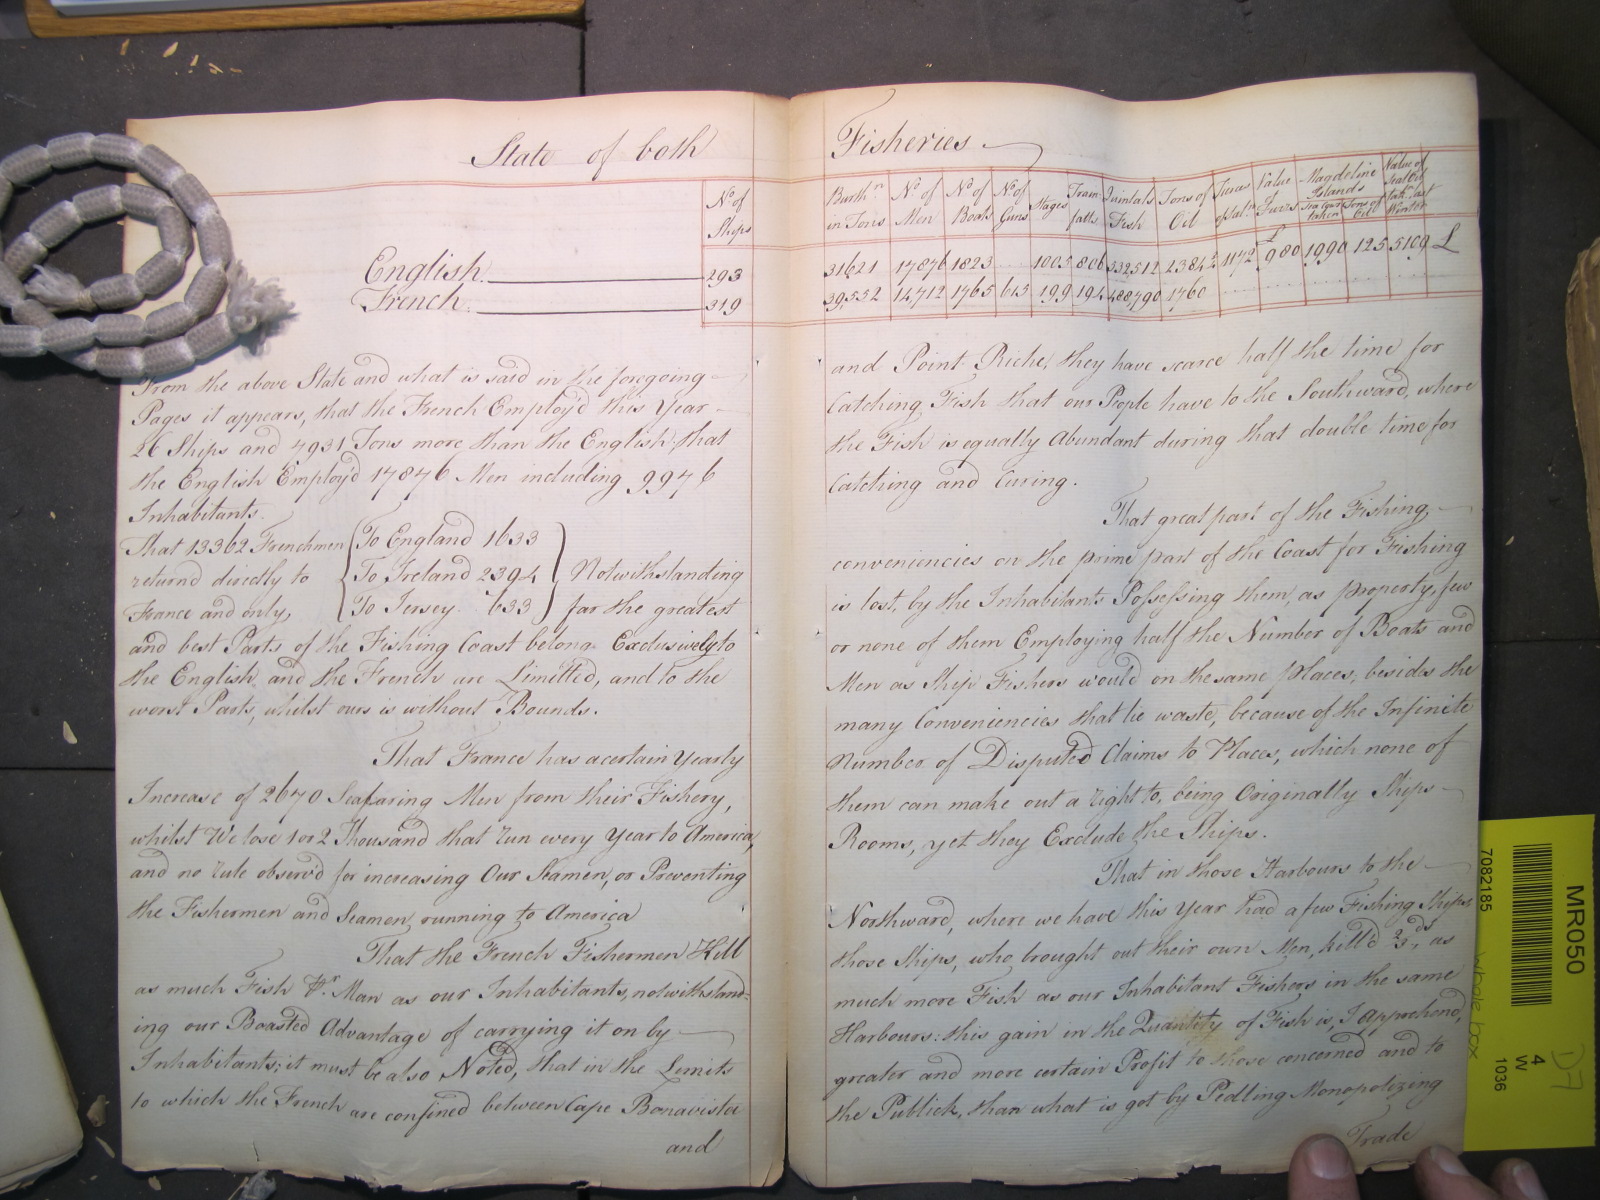 State of both Fisheries
No. of Ships
Burthn. in Tons
No. of Men
No. of Boats
No. of Guns
Stages
Train fatts
Quintals Fish
Tons of Oil
Value Furs
Magdeline Islands
Sea Cows taken
Tons of Oil
Value of Seal Oil takn. last Winter
English 293 31621 17876 1823 ... 1005 806 532512 2384 1172 £ 980 1990 125 5109 £
French 319 39,552 14,712 1765 615 199 194 488,790 1760
From the above State and what is said in the foregoing
Pages it appears, that the French Employ'd this Year
26 Ships and 7931 Tons more than the English; that
the English Employ'd 17876 Men including 9976
Inhabitants.
That 13362 Frenchmen { To England 1633 }
return'd directly to { To Ireland 2394 } Notwithstanding
France and only, { To Jersey 633 } far the greatest
and best Parts of the Fishing Coast belong Exclusively to
the English, and the French are Limitted, and to the
worst Parts, whilst ours is without Bounds.
That France has a certain Yearly
Increase of 2670 Seafaring Men from their Fishery,
whilst We lose 1 or 2 Thousand that run every Year to America,
and no rule observ'd for increasing Our Seamen, or Preventing
the Fishermen and Seamen running to America
That the French Fishermen Kill
as much Fish Pr. Man as our Inhabitants, notwithstand-
ing our Boasted Advantage of carrying it on by
Inhabitants; it must be also Noted, that in the Limits
to which the French are confined between Cape Bonavista
and
and Point Riche, they have scarce half the time for
Catching Fish that our People have to the Southward, where
the Fish is equally Abundant during that double time for
Catching and Curing.
That great part of the Fishing
conveniencies on the prime part of the Coast for Fishing
is lost, by the Inhabitants Possessing them, as property, few
or none of them Employing half the Number of Boats and
Men as Ship Fishers would on the same places; besides the
many Conveniencies that lie waste, because of the Infinite
Number of Disputed Claims to Places, which none of
them can make out a right to, being Originally Ships
Rooms, yet they Exclude the Ships.
That in those Harbours to the
Northward, where we have this Year had a few Fishing Ships,
those Ships, who brought out their own Men, kill'd 2/3ds. as
much more Fish as our Inhabitant Fishers in the same
Harbours: this gain in the Quantity of Fish is, I apprehend,
greater and more certain Profit to those concerned and to
the Publick, than what is got by Pedling Monopolizing
Trade
MR050
7082185
4
W
1036
whole box
D7